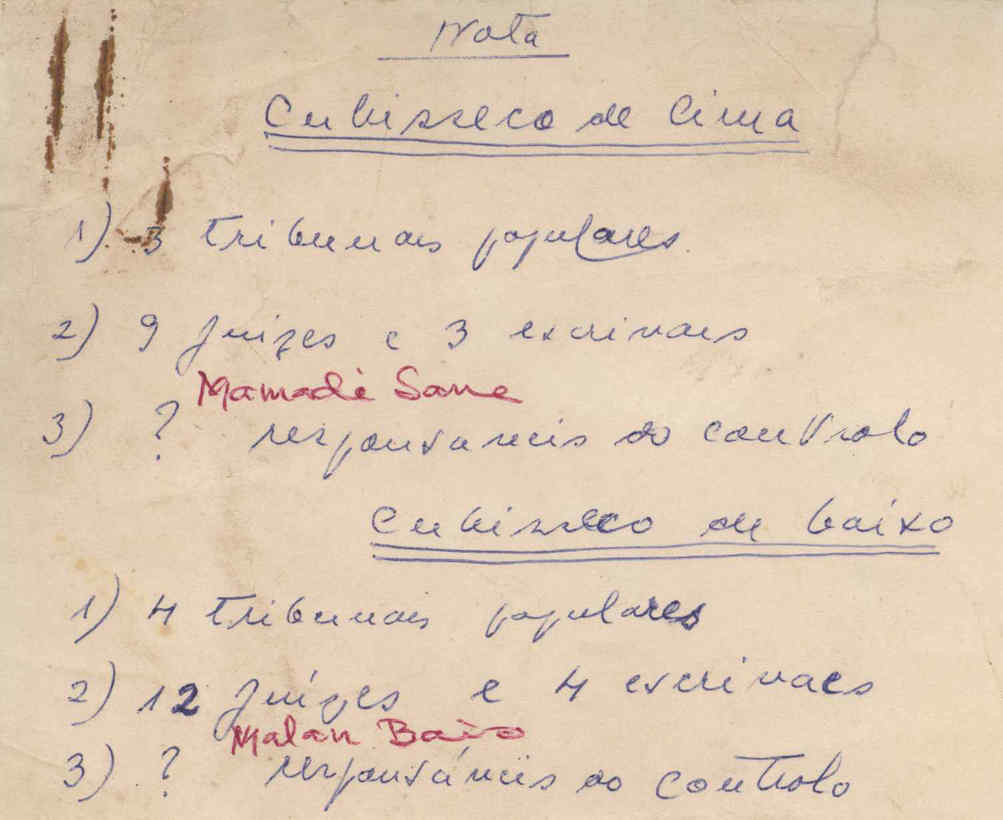 Nota
Cubisseco de Cima
1) 3 tribunais populares
2) 9 juizes e 3 escrivaes
Mamadé Sane
3) ? responsaveis do controlo
Cubisseco de baixo
1) 4 tribunais populares
2) 12 juízes e 4 escrivaes
Malan Baio
3) ? responsáveis do controlo